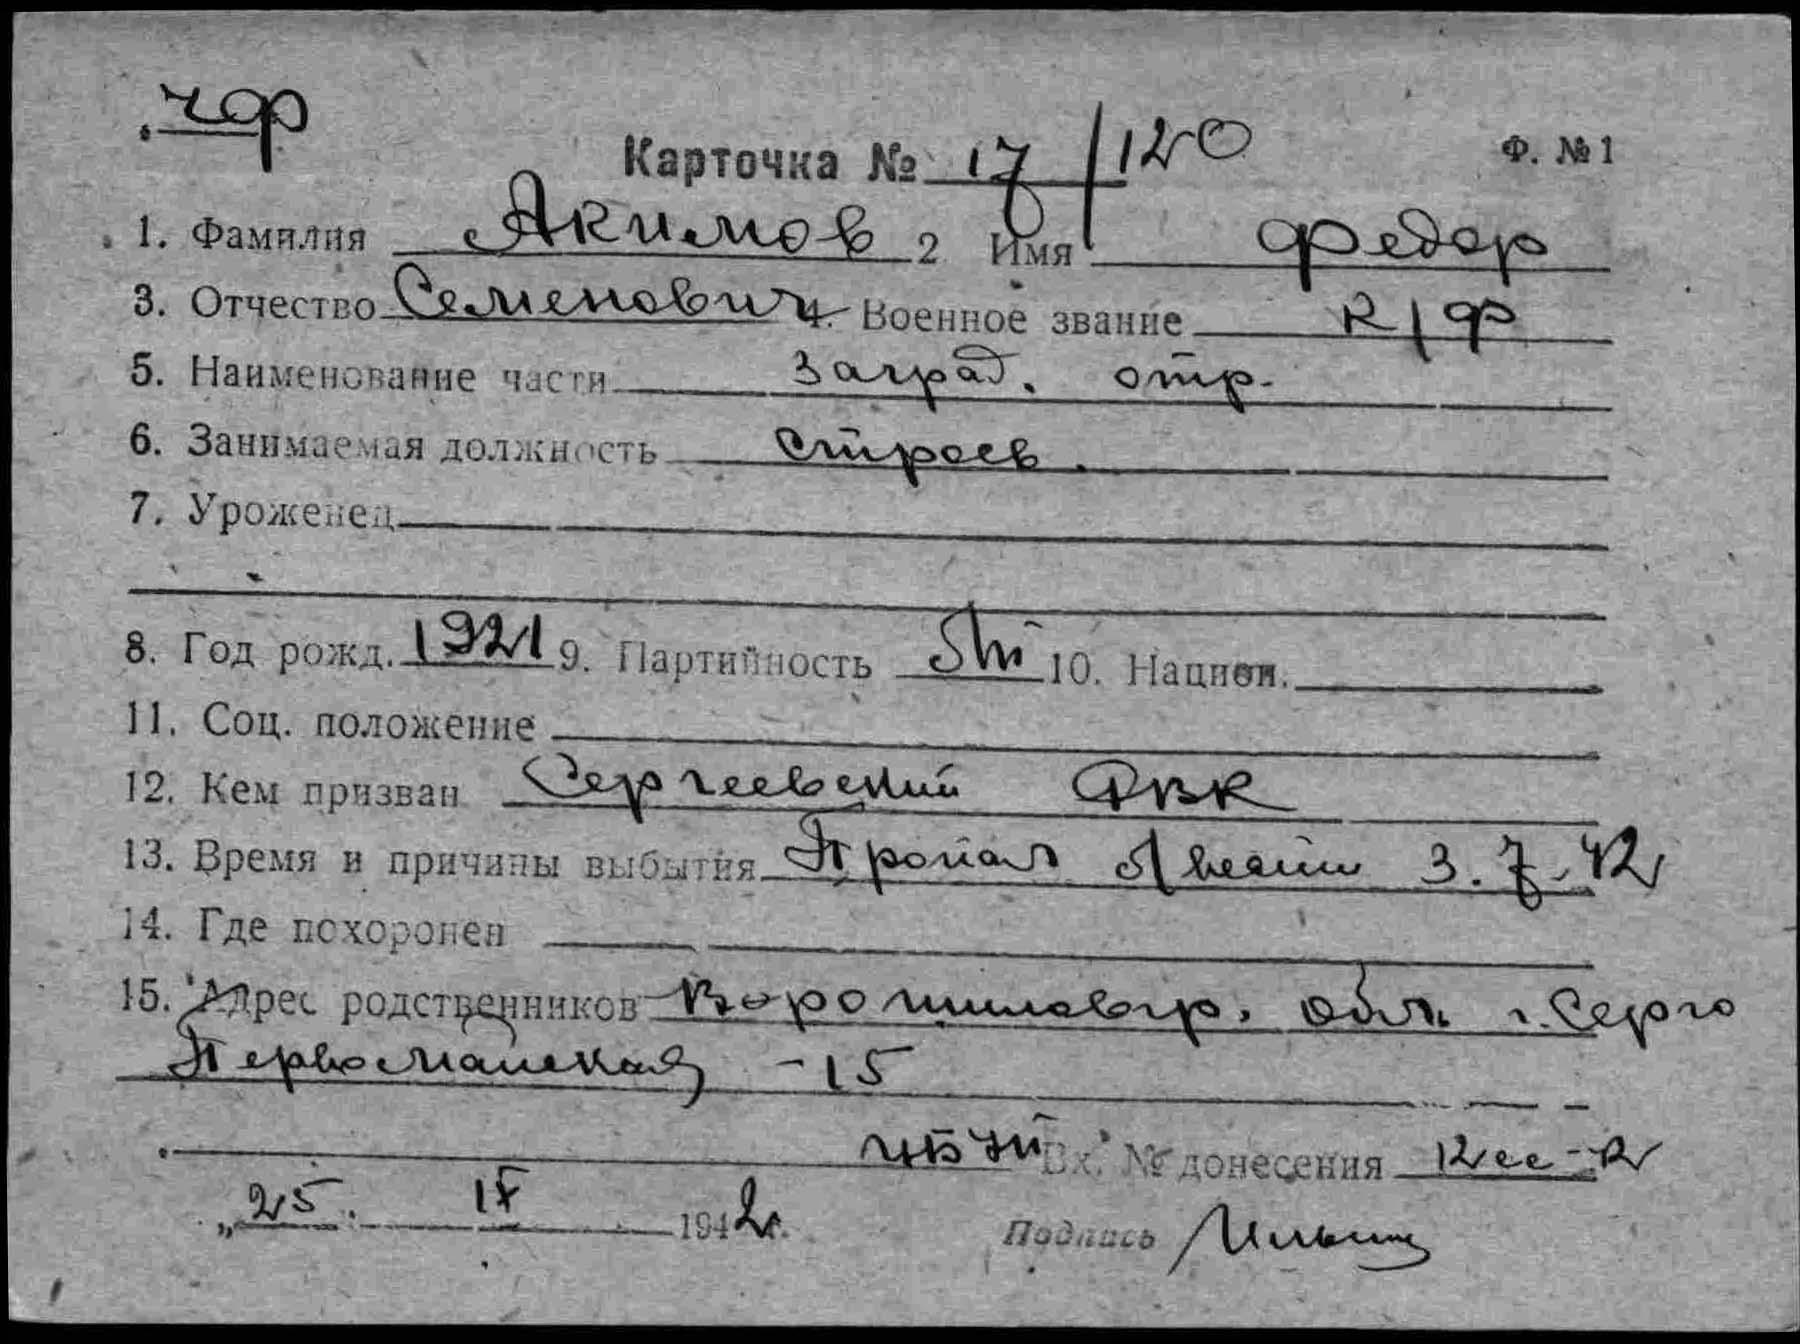 чф
Карточка № 17/120 Ф. № 1
1. Фамилия Акимов 2 Имя Федор
3. Отчество Семенович 4. Военное звание к/ф
5. Наименование части Заград. отр.
6. Занимаемая должность строев.
7. Уроженец
8. Год рожд. 1921 9. Партийность 10. Национ.
11. Соц. положение
12. Кем призван Сергеевский РВК
13. Время и причины выбытия Пропал 3.7.42
14. Где похоронен
15. Адрес родственников Ворошиловгр. обл. г. Серго
Первомайская - 15
Вх. № донесения 12сс-42
„25. IX 1942г. Подпись